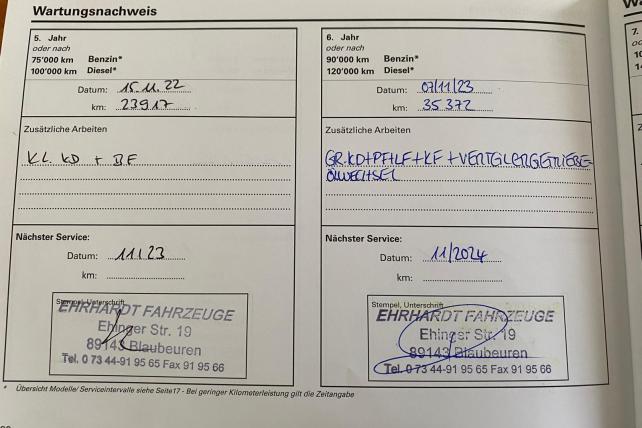 Wartungsnachweis
5. Jahr
oder nach
75'000 km Benzin*
100'000 km Diesel*
Datum: 15.11.22
km: 23917
Zusätzliche Arbeiten
KL. KD + BF
Nächster Service:
Datum: 11/23
km:
Stempel, Unterschrift
EHRHARDT FAHRZEUGE
Ehinger Str. 19
89143 Blaubeuren
Tel. 0 73 44-91 95 65 Fax 91 95 66
6. Jahr
oder nach
90'000 km Benzin*
120'000 km Diesel*
Datum: 07/11/23
km: 35 372
Zusätzliche Arbeiten
GR.KD+PF+LF+KF+VERTEILERGETRIEBE-
ÖLWECHSEL
Nächster Service:
Datum: 11/2024
km:
Stempel, Unterschrift
EHRHARDT FAHRZEUGE
Ehinger Str. 19
89143 Blaubeuren
Tel. 0 73 44-91 95 65 Fax 91 95 66
* Übersicht Modelle/ Serviceintervalle siehe Seite17 - Bei geringer Kilometerleistung gilt die Zeitangabe
7.